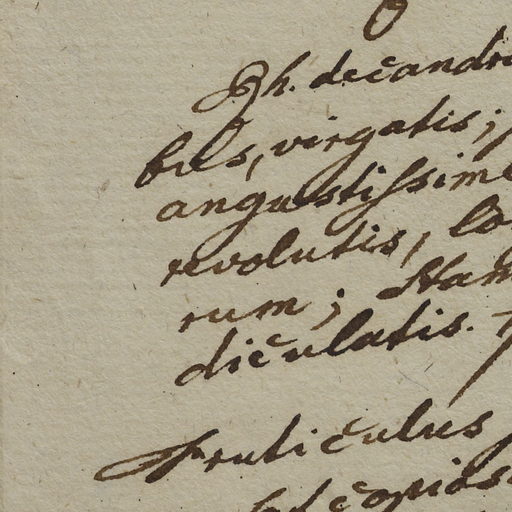 Ph. decandr
bus, virgatis;
angustissim
revolutis, lo
rum; stam
diculatis.
Fruticulus
copios